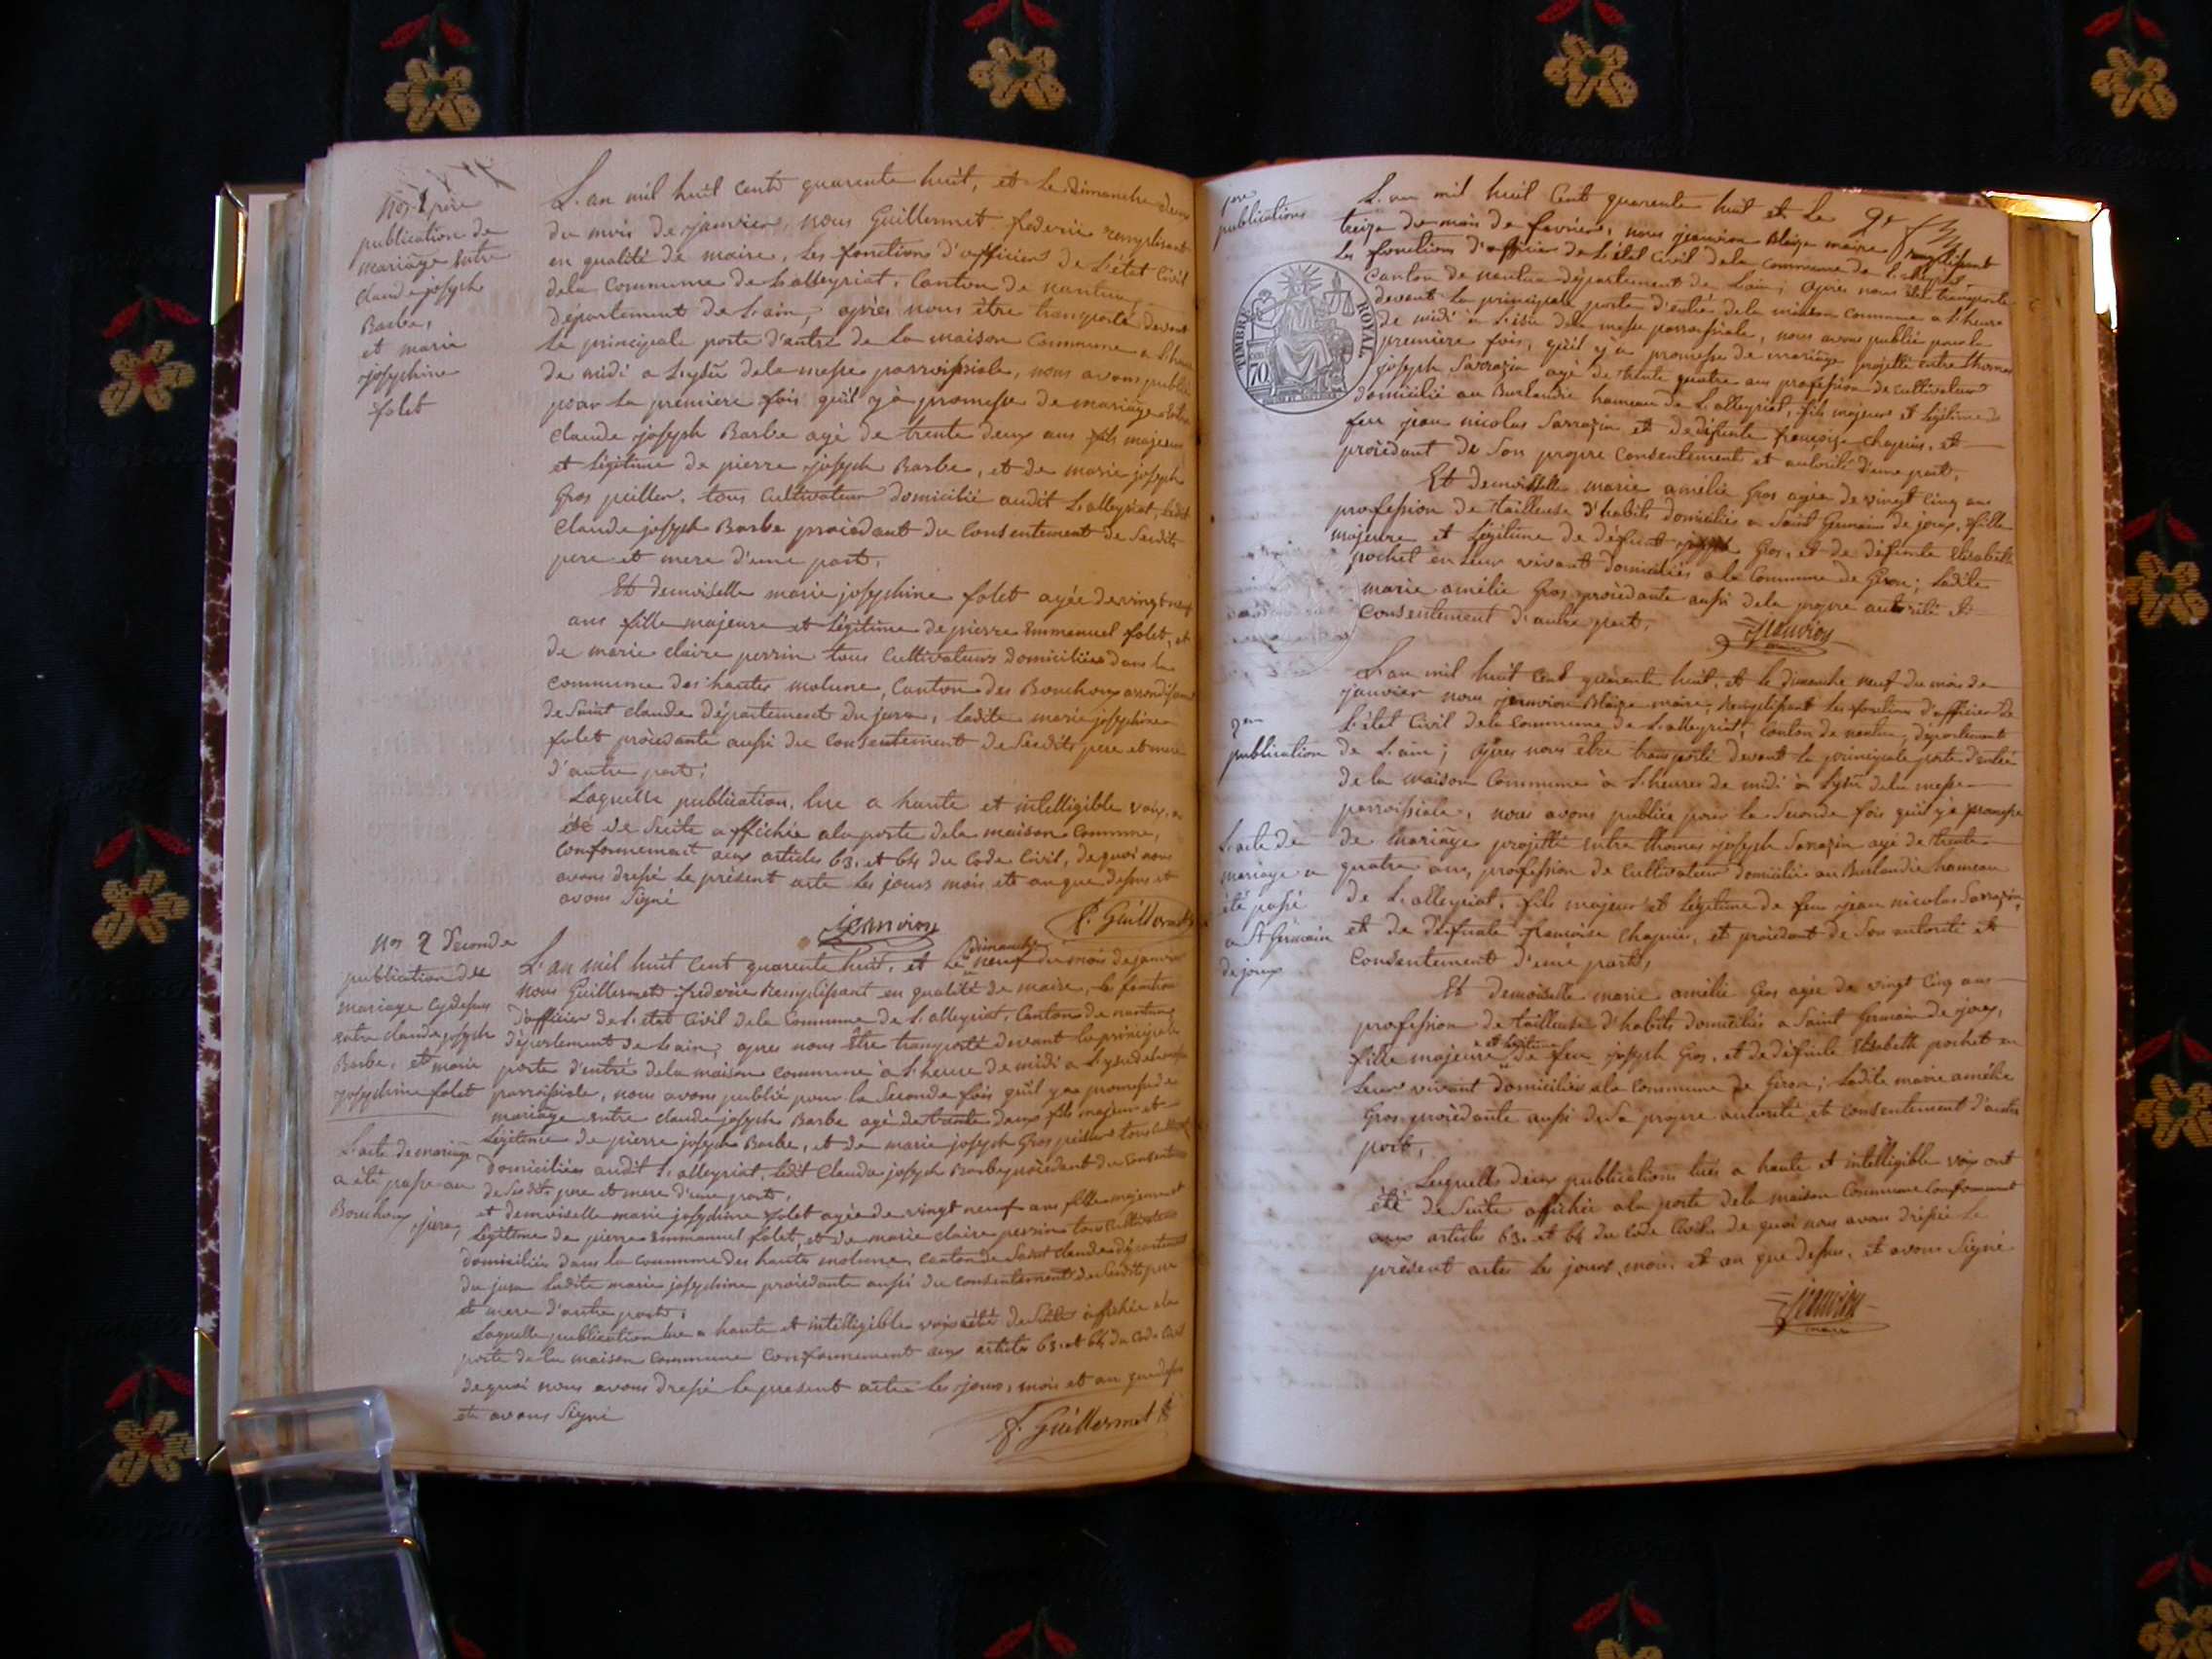 Nos 1 pere
publication de
mariage entre
claude joseph
Barbe,
et marie
josephine
folet
L'an mil huit cent quarente huit, et le dimanche deux
du mois de janvier, nous Guillermet frederic remplissant
en qualité de maire, les fonctions d'officier de l'état civil
dela commune de Lalleyriat, Canton de nantua,
département de Lain, après nous être transporté devant
la principale porte d'entré de la maison commune a l'heure
de midi a Lyssu dela messe parroissiale, nous avons publié
pour la premiere fois qu'il y à promesse de mariage entre
claude joseph Barbe agé de trente deux ans fils majeur
et légitime de pierre joseph Barbe, et de marie joseph
Gros peiller, tous cultivateur domicilié audit L'alleyriat, Ledit
claude joseph Barbe procédant du consentement de Sesdits
pere et mere d'une part,
Et demoiselle marie josephine folet agée de vingt neuf
ans fille majeure et légitime de pierre Emmanuel folet, et
de marie claire perrin tous cultivateurs domiciliés dans la
commune des hautes molune, Canton des Bouchoux arrondissement
de Saint claude département du jura, ladite marie josephine
folet procédante aussi du consentement de Sesdits pere et mere
d'autre part;
Laquelle publication, lue a haute et intelligible voix, a
été de Suite affichée ala porte dela maison commune,
conformement aux articles 63. et 64 du Code Civil, de quoi nous
avons dressé le présent acte les jours mois et an que dessus et
avons Signé
jeanvion F. Guillermet
Nos 2 Seconde
publication de
mariage cy dessus
entre claude joseph
Barbe, et marie
josephine folet
L'acte de mariage
a été passé au
Bouchoux jura,
L'an mil huit cent quarente huit, et le dimanche neuf du mois de janvier
nous Guillermet frederic Remplissant en qualité de maire, les fonction
d'officier de l'etat Civil dela commune de L'alleyriat, Canton de nantua
département de Lain, apres nous être transporté devant la principale
porte d'entré dela maison commune à l'heure de midi a Lyssu dela messe
parroissiale, nous avons publié pour la Seconde fois quil y a promesse de
mariage entre claude joseph Barbe agé de trente deux fils majeur et
légitime de pierre joseph Barbe, et de marie joseph Gros peiller tous
domiciliés audit L'alleyriat, ledit claude joseph Barbe procédant du consentement
de Sesdits pere et mere d'une part,
et demoiselle marie josephine folet agée de vingt neuf ans fille majeure et
légitime de pierre Emmanuel folet, et de marie claire perrin tous cultivateurs
domiciliés dans la commune des hautes molunes, canton de Saint claude département
du jura ladite marie josephine procédante aussi du consentement de Sesdits pere
et mere d'autre part,
Laquelle publication lue a haute et intelligible voix a été de Suite affichée ala
porte dela maison commune conformement aux articles 63. et 64 du Code Civil
dequoi nous avons dressé le présent acte les jours, mois et an que dessus
et avons Signé
F. Guillermet
1ere
publications
TIMBRE ROYAL
70
L'an mil huit Cent quarente huit et le
treize du mois de fevrier, nous jeanvion Blaize maire remplissant
les fonctions d'officier de l'état Civil dela commune de L'alleyriat
canton de nantua département de Lain; apres nous être transporté
devant la principale porte d'entrée dela maison commune a l'heure
de midi à l'issu dela messe parroissiale, nous avons publié pour la
première fois, qu'il y'a promesse de mariage projetté entre thomas
joseph Sarrazin agé de trente quatre ans profession de cultivateur
domicilié au Burlandié hameau de L'alleyriat, fils majeur et légitime de
feu jean nicolas Sarrazin et de défunte françoise chapuis, et
procédant de Son propre consentement et autorité d'une part,
Et demoiselle marie amélie Gros agée de vingt cinq ans
profession de tailleuse d'habits domiciliée a Saint Germain de joux, fille
majeure et Légitime de défunt joseph Gros, et de défunte Elisabeth
pochet en leur vivant domiciliés ala commune de Giron; Ladite
marie amélie Gros procédante aussi dela propre autorité et
consentement d'autre part,
jeanvion
maire
2em
publication
L'acte de
mariage a
été passé
a St Germain
de joux
L'an mil huit Cent quarente huit, et le dimanche neuf du mois de
janvier nous jeanvion Blaize maire, remplissant les fonctions d'officier de
L'état Civil dela commune de L'alleyriat, Canton de nantua, département
de L'ain; après nous être transporté devant la principale porte d'entrée
de la maison Commune à l'heure de midi à Lyssu dela messe
parroissiale, nous avons publiée pour la Seconde fois quil y'a promesse
de mariage projetté entre thomas joseph Sarrazin agé de trente
quatre ans, profession de cultivateur domicilié au Burlandié hameau
de L'alleyriat, fils majeur et légitime de feu jean nicolas Sarrazin,
et de défunte françoise chapuis, et procédant de Son autorité et
Consentement d'une part,
Et demoiselle marie amélie Gros agée de vingt cinq ans
profession de tailleuse d'habits domiciliée a Saint Germain de joux,
fille majeure et légitime de feu joseph Gros, et de défunte Elisabeth pochet en
leur vivant domiciliés ala commune de Giron; Ladite marie amélie
Gros procédante aussi de Sa propre autorité et consentement d'autre
part,
Lesquelles deux publications lues a haute et intelligible voix ont
été de Suite affichée ala porte dela maison Commune conformement
aux articles 63. et 64 du Code Civil. de quoi nous avons dressé le
présent actes les jours, mois et an que dessus, et avons Signé
jeanvion
maire